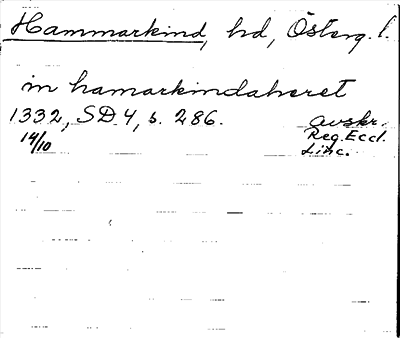 Hammarkind, hd, Österg. l.
in hamarkindahæret
1332, SD 4, s. 286. avskr.
14/10 Reg. Eccl.
Linc.